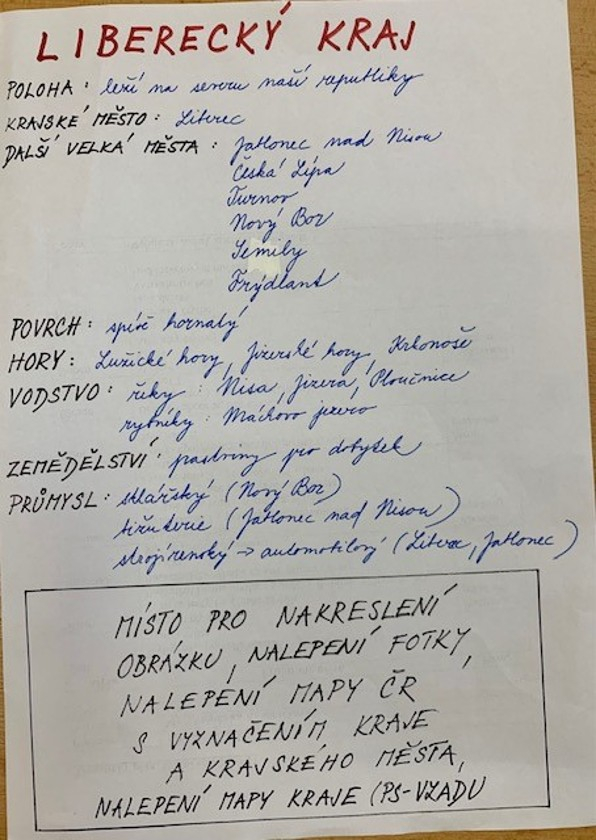 LIBERECKÝ KRAJ
POLOHA: leží na severu naší republiky
KRAJSKÉ MĚSTO: Liberec
DALŠÍ VELKÁ MĚSTA: Jablonec nad Nisou
Česká Lípa
Turnov
Nový Bor
Semily
Frýdlant
POVRCH: spíš hornatý
HORY: Lužické hory, Jizerské hory, Krkonoše
VODSTVO: řeky: Nisa, Jizera, Ploučnice
rybníky: Máchovo jezero
ZEMĚDĚLSTVÍ: pastviny pro dobytek
PRŮMYSL: sklářský (Nový Bor)
bižuterie (Jablonec nad Nisou)
strojírenský → automobilový (Liberec, Jablonec)
MÍSTO PRO NAKRESLENÍ
OBRÁZKU, NALEPENÍ FOTKY,
NALEPENÍ MAPY ČR
S VYZNAČENÍM KRAJE
A KRAJSKÉHO MĚSTA,
NALEPENÍ MAPY KRAJE (PS-VZADU